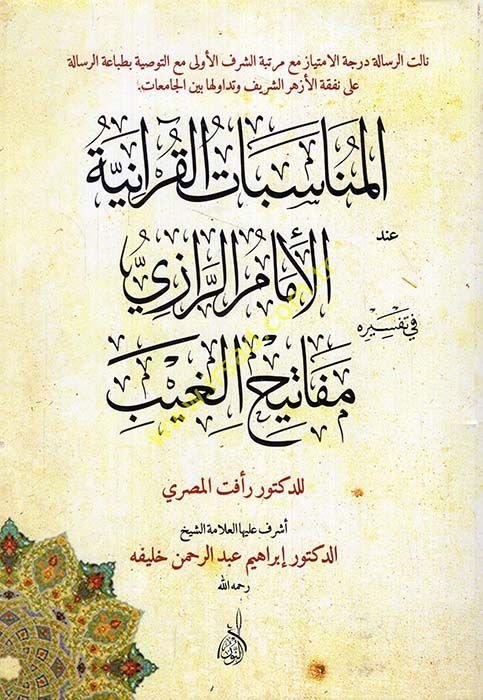 نالت الرسالة درجة الامتياز مع مرتبة الشرف الأولى مع التوصية بطباعة الرسالة
على نفقة الأزهر الشريف وتداولها بين الجامعات.
المُنَاسَبَاتُ القُرآنِيَّةُ
عند
الإمَامُ الرَّازِيُّ
في تفسيره
مَفَاتِيحُ الغَيْبِ
للدكتور رأفت المصري
أشرف عليها العلامة الشيخ
الدكتور إبراهيم عبد الرحمن خليفه
رحمه الله